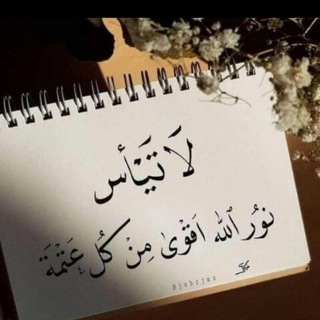 لَا تَيْأس
نُورُ اللّٰه اَقْوىٰ مِنْ كُلِ عَتْمَة